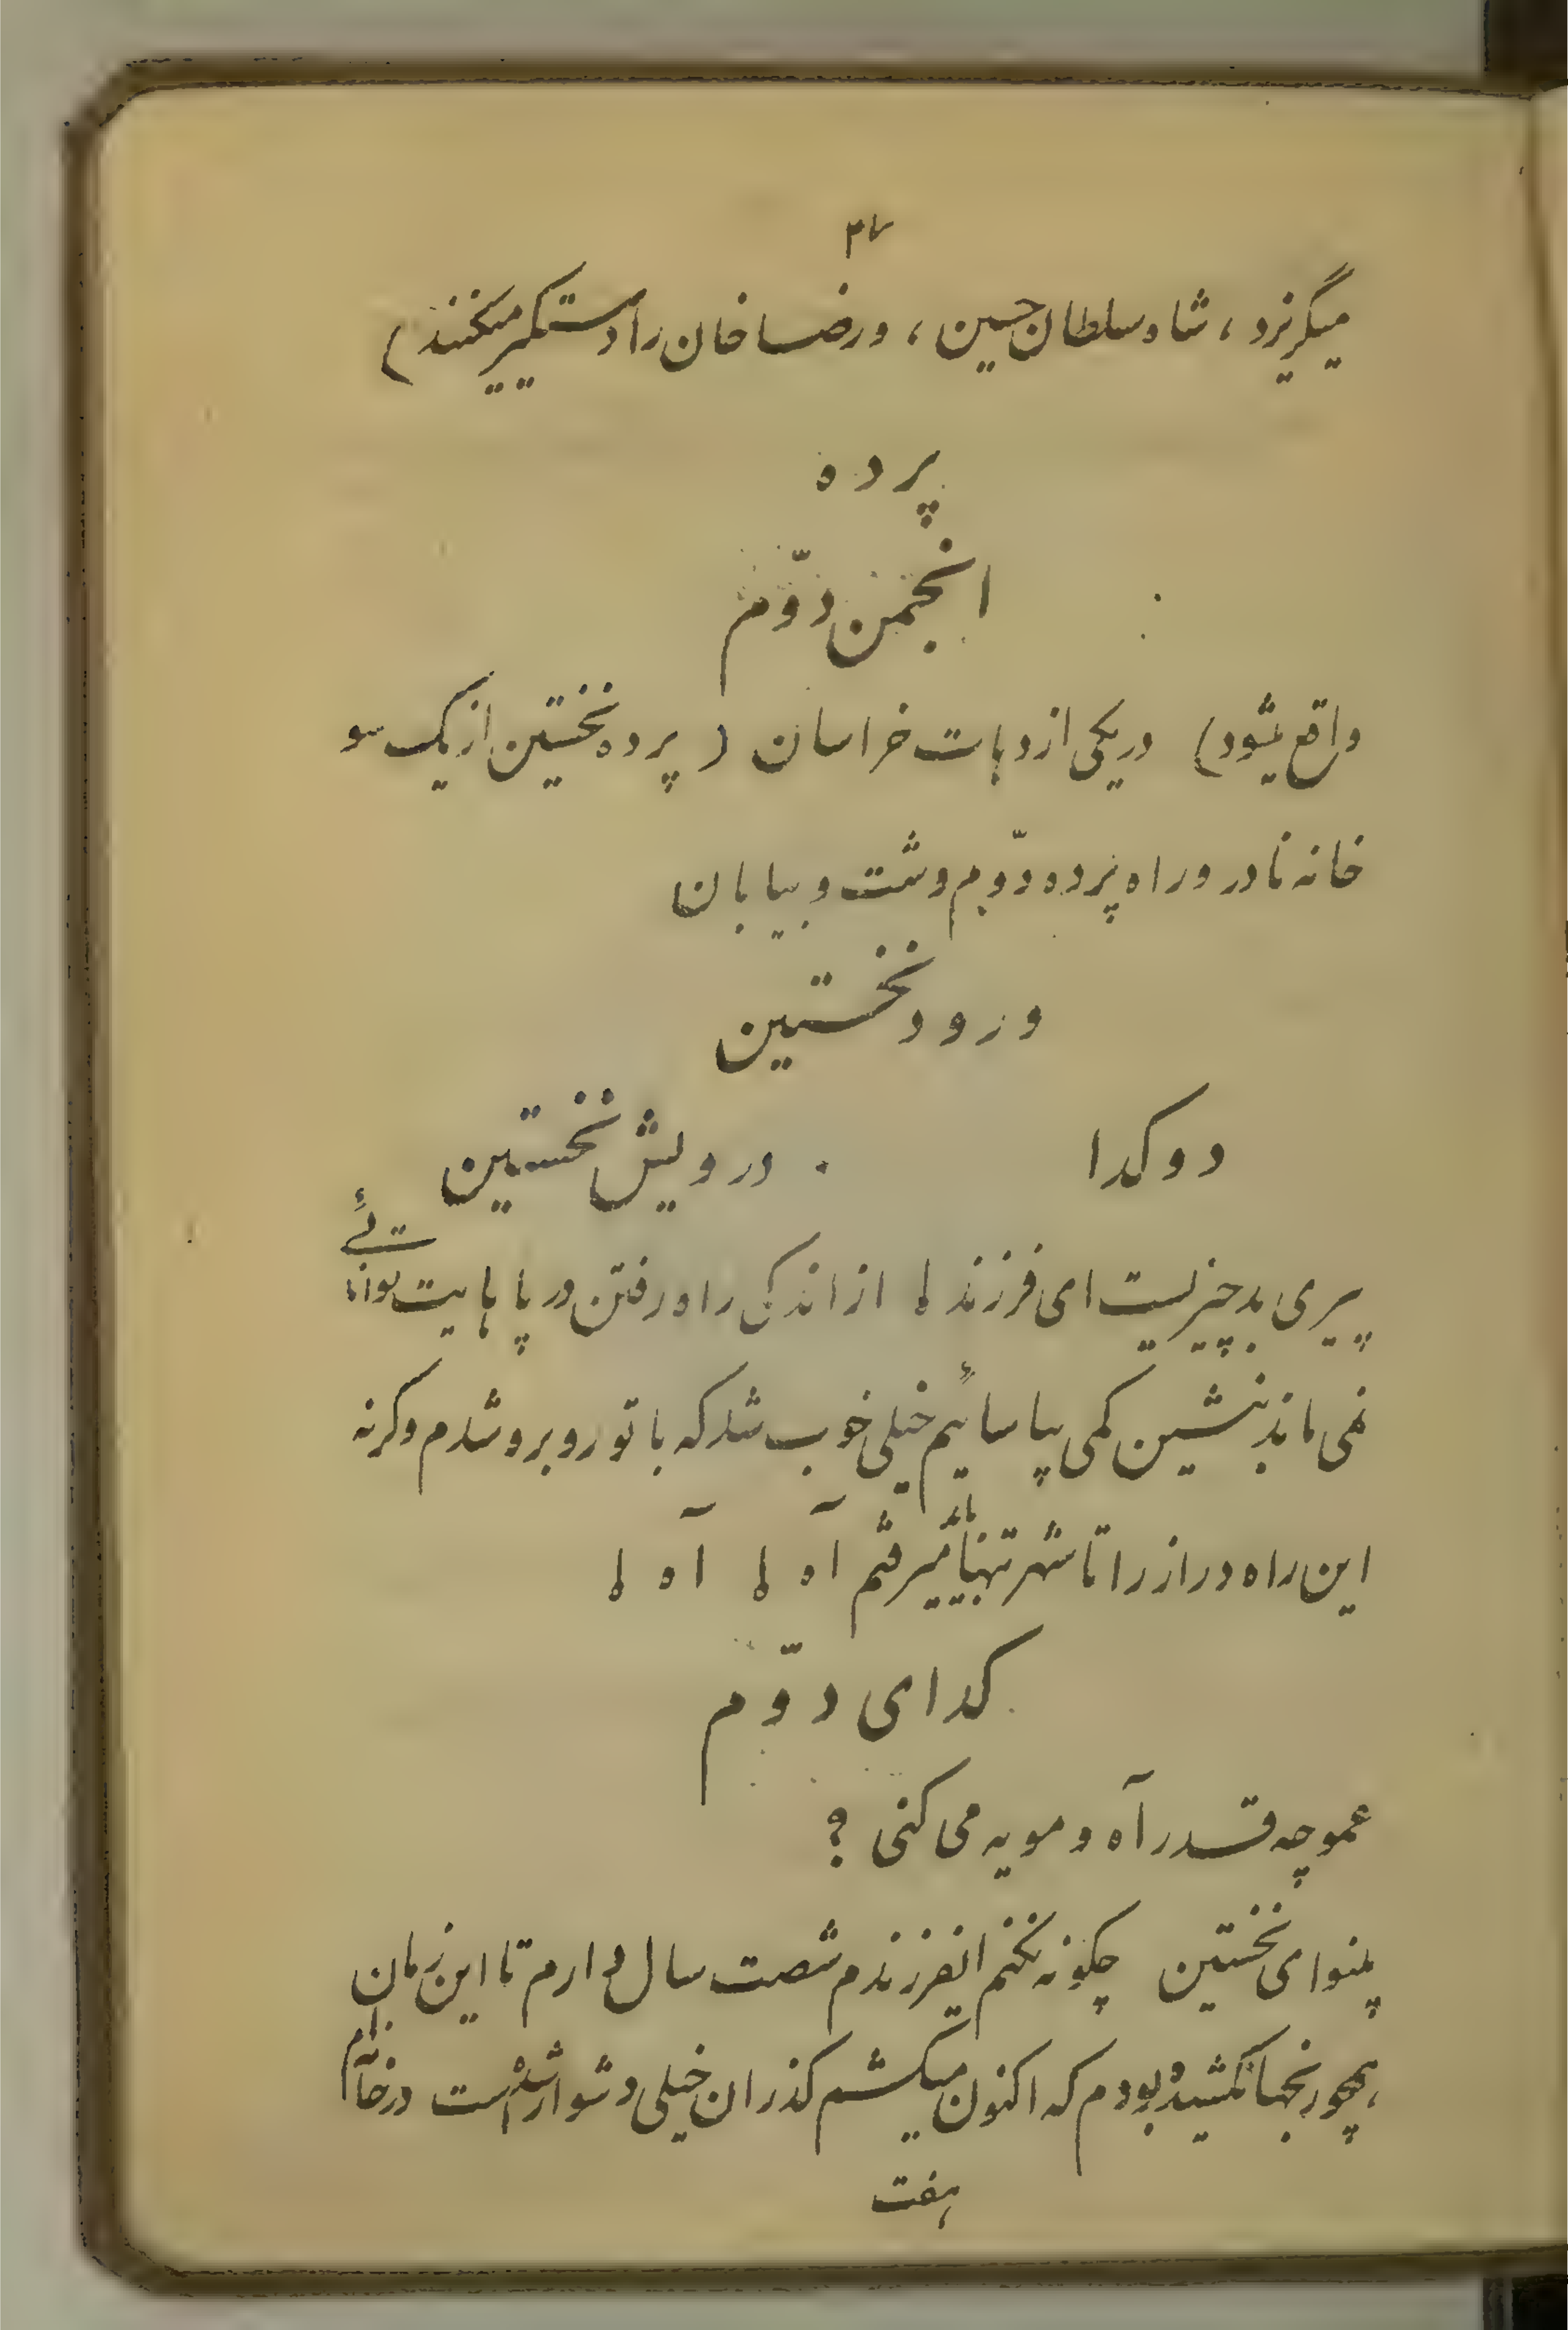 ۳۷
میگریزد ، شاه سلطان حسین ، و رضا خان را دستگیر میکنند )
پرده
انجمن دوّم
واقع میشود) در یکی از دهات خراسان ( پرده نخستین از یک سو
خانه نادر و راه پرده دوّم دشت و بیابان
ورود نخستین
دو کدا درویش نخستین
پیری بد چیزیست ای فرزند ! از اندکی راه رفتن در پاهایت توانائی
نمی ماند بنشین کمی بیاسائیم خیلی خوب شد که با تو روبرو شدم و کرنه
این راه دراز را تا شهر تنها میرفتم آه ! آه !
کدای دوّم
عمو چه قدر آه و مویه می کنی ؟
بینوای نخستین چکونه نکنم ایفرزندم شصت سال دارم تا این زمان
همچو رنجها نکشیده بودم که اکنون میکشم کذران خیلی دشوار شده است در خانه ام
هفت